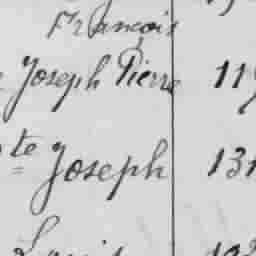 François
Joseph Pierre 119
te Joseph 131
Louis